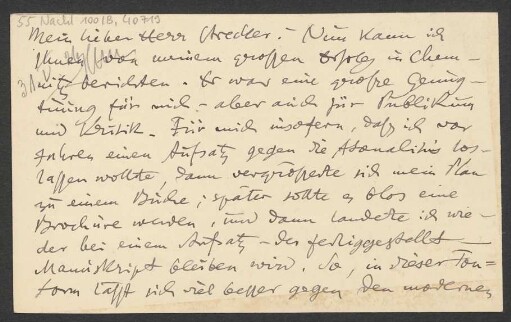 55 Nachl 100/B, 40719
Mein lieber Herr Strecker! – Nun kann ich
Ihnen von meinem grossen Erfolg in Chem-
nitz berichten. Es war eine große Genug-
tuung für mich – aber auch für Publikum
und Kritik. Für mich insofern, daß ich vor
Jahren einen Aufsatz gegen die Atonalität los-
lassen wollte, dann vergrösserte sich mein Plan
zu einem Buche; später sollte es blos eine
Brochüre werden, und dann landete ich wie-
der bei einem Aufsatz – der fertiggestellt
Manuskript bleiben wird. So, in dieser Ton-
form läßt sich viel besser gegen den modernen